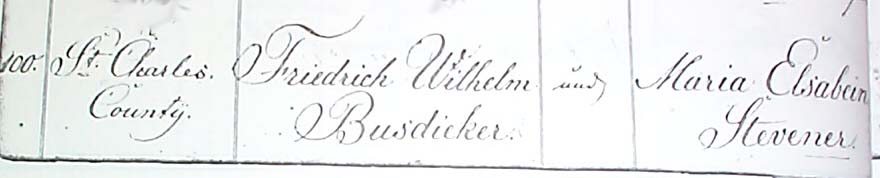 100. St. Charles. Friedrich Wilhelm und Maria Elsabein
County. Busdicker. Stevener.